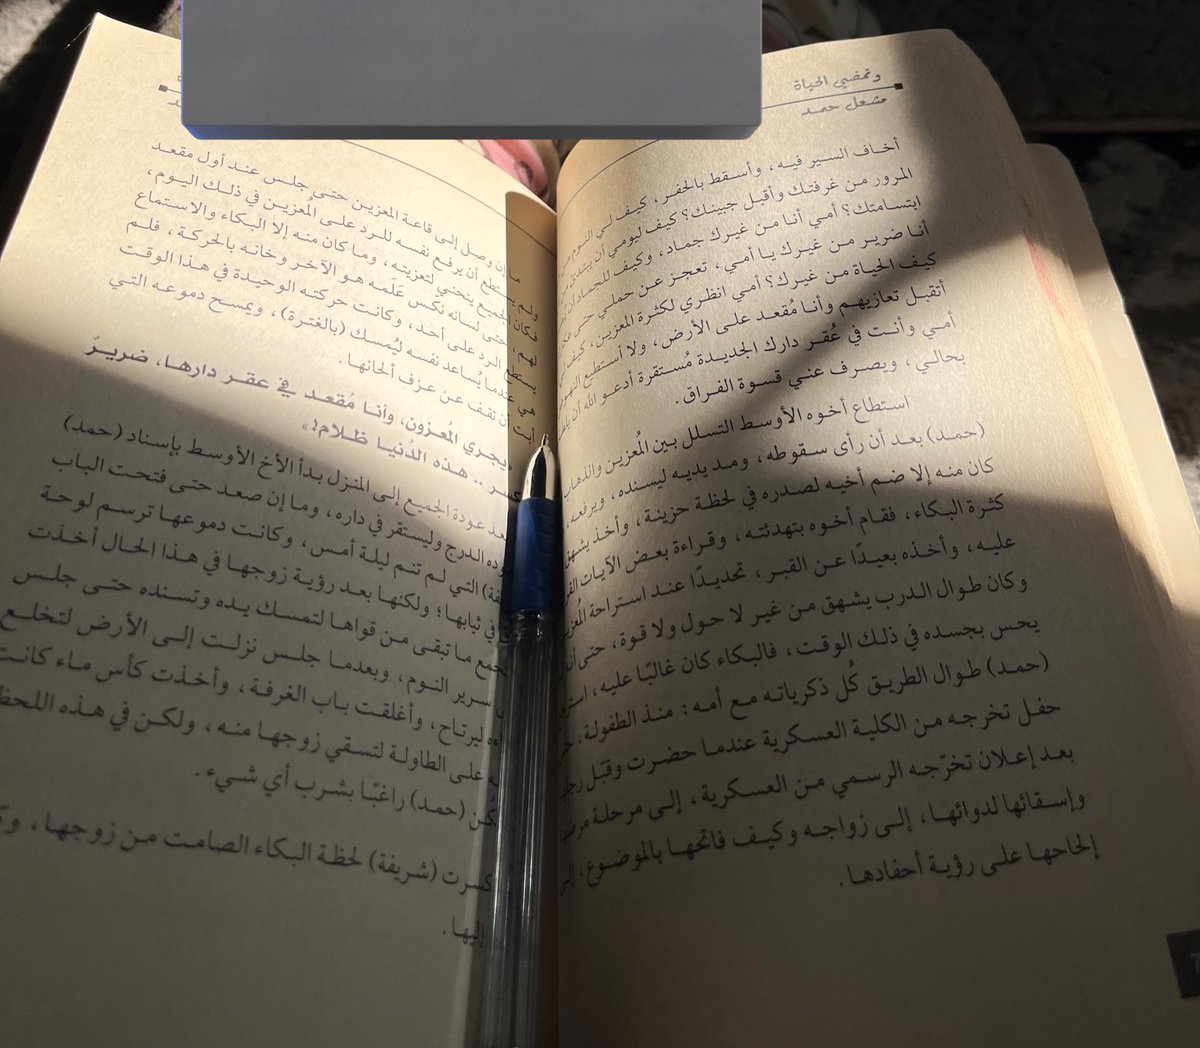 وتمضي الحياة
مشعل حمد
أخاف السير فيه، وأسقط بالحفر، كيف لي النوم
المرور من غرفتك وأقبل جبينك؟ كيف ليومي أن يبتدئ
ابتسامتك؟ أمي أنا من غيرك جماد، وكيف للجماد أن
أنا ضرير من غيرك يا أمي، تعجز عن حملي حتى
كيف الحياة من غيرك؟ أمي انظري لكثرة المعزين، كيف
أتقبل تعازيهم وأنا مُقعد على الأرض، ولا أستطيع
أمي وأنت في عُقر دارك الجديدة مُستقرة أدعو الله أن
بحالي، ويصرف عني قسوة الفراق.
استطاع أخوه الأوسط التسلل بين المُعزين والذهاب
(حمد) بعد أن رأى سقوطه، ومد يديه ليسنده، ويرفعه.
كان منه إلا ضم أخيه لصدره في لحظة حزينة، وأخذ يشهق
كثرة البكاء، فقام أخوه بتهدئته، وقراءة بعض الآيات
عليه، وأخذه بعيدًا عن القبر، تحديدًا عند استراحة
وكان طوال الدرب يشهق من غير لا حول ولا قوة، حتى
يحس بجسده في ذلك الوقت، فالبكاء كان غالبًا عليه،
(حمد) طوال الطريق كُل ذكرياته مع أمه: منذ الطفولة.
حفل تخرجه من الكلية العسكرية عندما حضرت وقبّل
بعد إعلان تخرّجه الرسمي من العسكرية، إلى مرحلة
وإسقائها لدوائها، إلى زواجه وكيف فاتحها بالموضوع،
إلحاحها على رؤية أحفادها.
ما إن وصل إلى قاعة المعزين حتى جلس عند أول مقعد
ولم يستطع أن يرفع نفسه للرد على المُعزين في ذلك اليوم،
فكان الجميع ينحني لتعزيته، وما كان منه إلا البكاء والاستماع
لهم، حتى لسانه نكّس عَلَمه هو الآخر وخانه بالحركة، فلم
يستطع الرد على أحد، وكانت حركته الوحيدة في هذا الوقت
هي عندما يُساعد نفسه ليُمسك (بالغترة)، ويمسح دموعه التي
أبت أن تقف عن عزف ألحانها.
يجري المُعزون، وأنا مُقعد في عقر دارها، ضريرٌ
.. هذه الدُنيا ظلام!»
عودة الجميع إلى المنزل بدأ الأخ الأوسط بإسناد (حمد)
الدرج وليستقر في داره، وما إن صعد حتى فتحت الباب
التي لم تنم ليلة أمس، وكانت دموعها ترسم لوحة
في ثيابها؛ ولكنها بعد رؤية زوجها في هذا الحال أخذت
ما تبقى من قواها لتمسك يده وتسنده حتى جلس
سرير النوم، وبعدما جلس نزلت إلى الأرض لتخلع
ليرتاح، وأغلقت باب الغرفة، وأخذت كأس ماء كانت
على الطاولة لتسقي زوجها منه، ولكن في هذه
(حمد) راغبًا بشرب أي شيء.
كسرت (شريفة) لحظة البكاء الصامت من زوجها،
إليها.